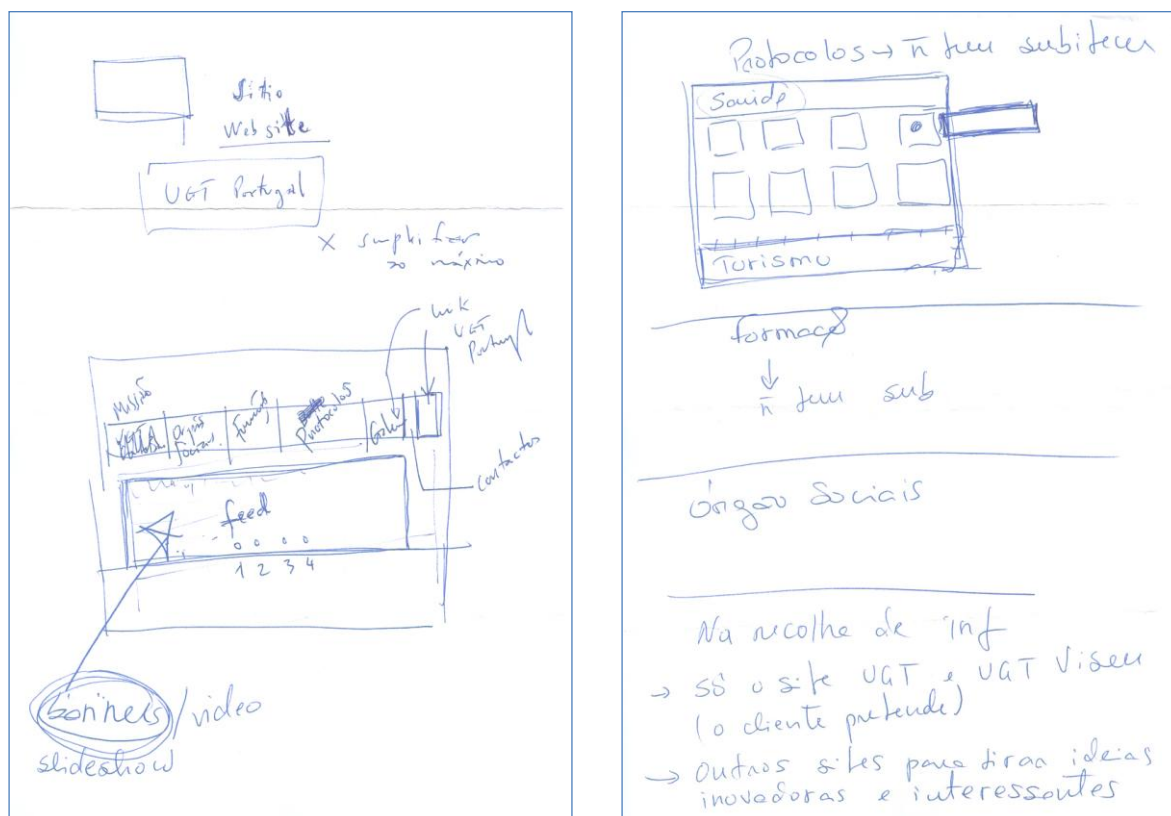 Sítio
Web site
UGT Portugal
X simplificar
ao máximo
link
UGT
Portugal
Missão
Órgãos
Sociais
Formação
Protocolos
contactos
feed
1 2 3 4
banners / video
slideshow
Protocolos → ñ tem subitem
Saúde
Turismo
formação
↓
ñ tem sub
Órgão Sociais
Na recolha de inf
→ só o site UGT e UGT Viseu
(o cliente pretende)
→ Outros sites para tirar ideias
inovadoras e interessantes